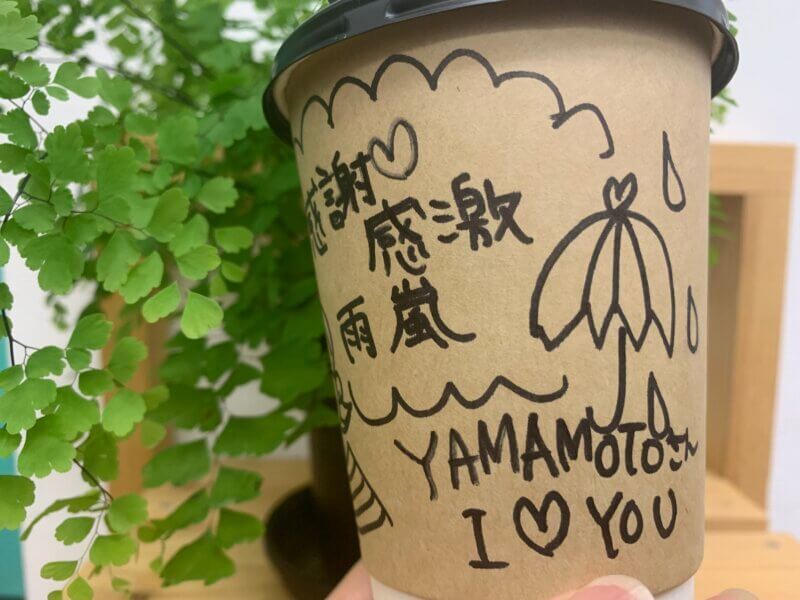 感謝♡
感激
雨嵐
YAMAMOTOさん
I ♡ YOU